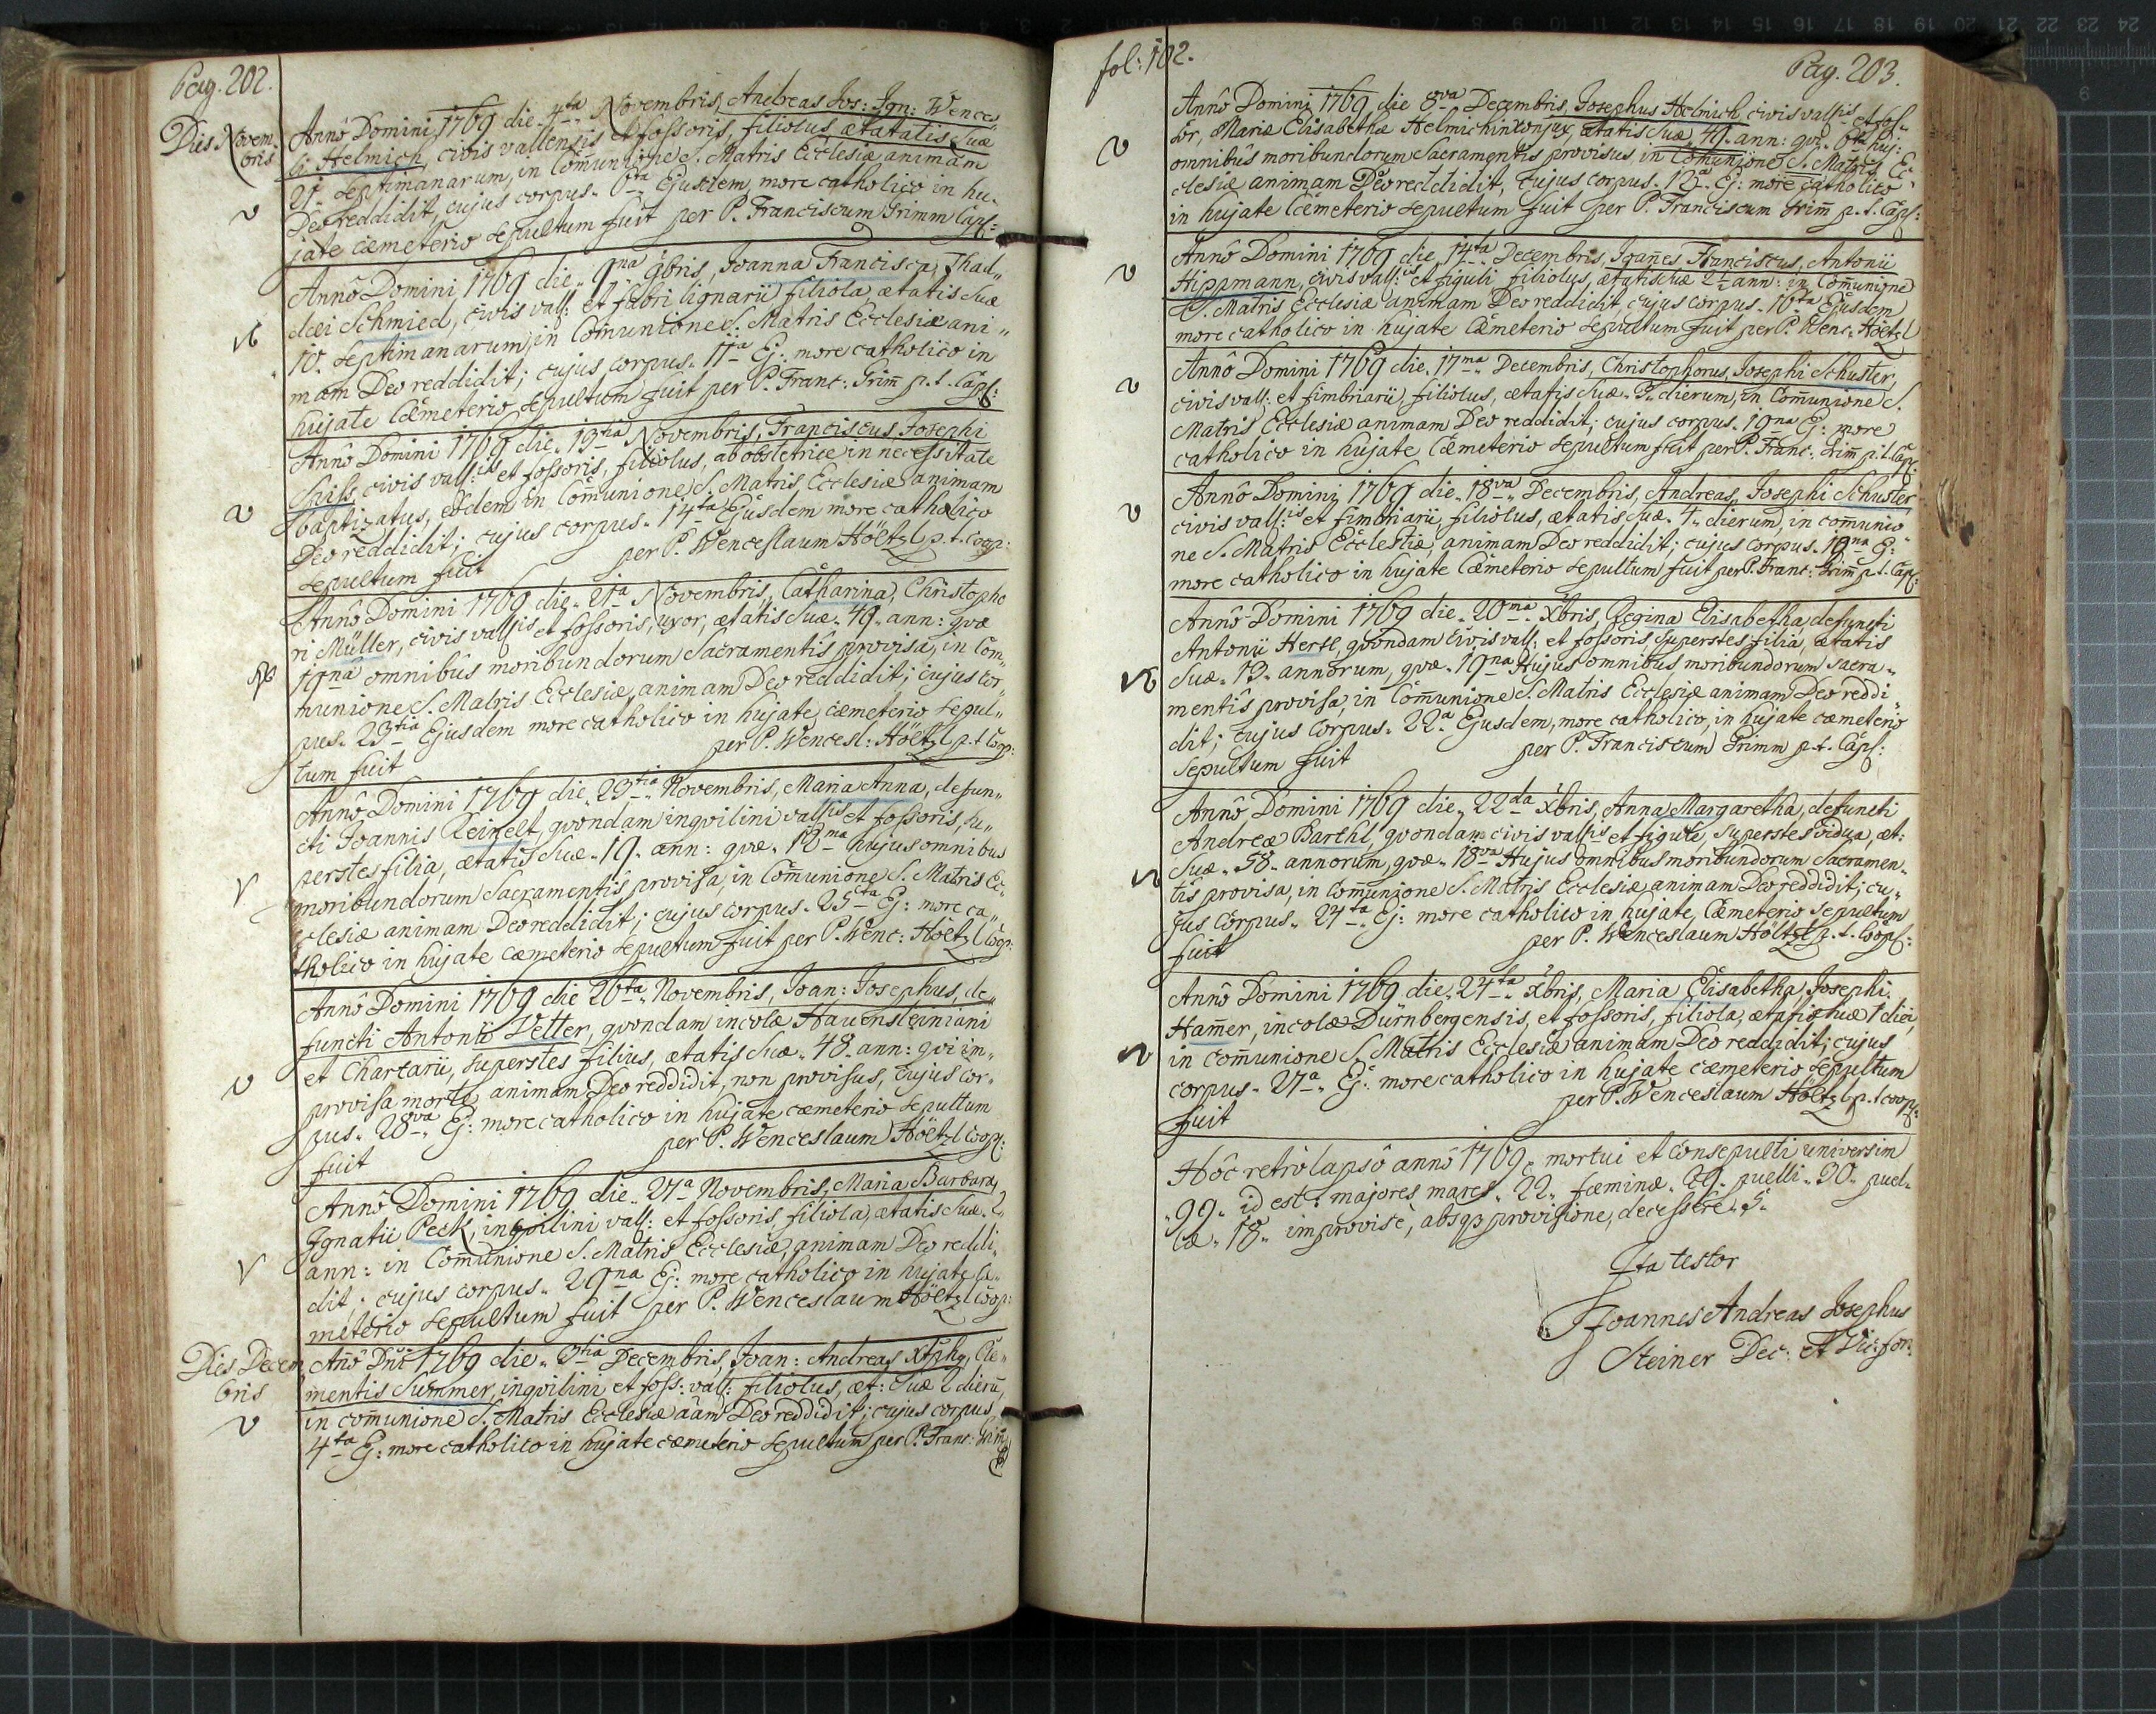 Pag. 202.
Dies Novem-
bris
Anno Domini 1769 die 4ta Novembris, Andreas Jos: Ign: Wences
li Helmich, civis vallensis et fossoris, filiolus, ætatis suæ
21. septimanarum, in Communione S. Matris Ecclesiæ animam
Deo reddidit, cujus corpus 6ta Ejusdem, more catholico in hu-
jate cæmeterio sepultum fuit per P. Franciscum Grimm Capl:
Anno Domini 1769 die 9na 9bris, Joanna Francisca, Thad-
dæi Schmied, civis vall: et fabri lignarii filiola, ætatis suæ
10. septimanarum, in Comunione S: Matris Ecclesiæ ani-
mam Deo reddidit; cujus corpus 11a Ej: more catholico in
hujate Cæmeterio sepultum fuit per P. Franc: Grim̄ p. t. Capl:
Anno Domini 1769 die 13tia Novembris, Franciscus, Josephi
Spiss, civis vall:is et fossoris, filiolus, ab obstetrice in necessitate
baptizatus, eodem in Com̄unione S. Matris Ecclesiæ animam
Deo reddidit; cujus corpus 14ta Ejusdem more catholico
sepultum fuit per P. Wenceslaum Höltzl p. t. Coop:
Anno Domini 1769 die 21a Novembris, Catharina, Christopho
ri Müller, civis vallis et fossoris, uxor, ætatis suæ 49 ann: quæ
19na omnibus moribundorum Sacramentis provisa, in Com-
munione S. Matris Ecclesiæ, animam Deo reddidit; cujus cor-
pus 23tia Ejusdem more catholico in hujate cæmeterio sepul-
tum fuit per P. Wencesl: Höltzl p. t. Coop:
Anno Domini 1769 die 23tia Novembris, Maria Anna, defun-
cti Joannis Reinelt, quondam inquilini vallis et fossoris, su-
perstes filia, ætatis suæ 19. ann: quæ 12ma hujus omnibus
moribundorum Sacramentis provisa, in Com̄unione S. Matris Ec-
clesiæ animam Deo reddidit; cujus corpus 25ta Ej: more ca-
tholico in hujate cæmeterio sepultum fuit per P. Wenc: Höltzl Coop:
Anno Domini 1769 die 26ta Novembris, Joan: Josephus, de-
functi Antonii Vetter, quondam incolæ Hauensteiniani
et Chartarii, superstes filius, ætatis suæ 48. ann: qui im-
provisa morte animam Deo reddidit, non provisus, cujus cor-
pus 28va Ej: more catholico in hujate cæmeterio sepultum
fuit per P. Wenceslaum Höltzl Coop:
Anno Domini 1769 die 27a Novembris, Maria Barbara,
Ignatii Peck, inquilini vall: et fossoris, filiola, ætatis suæ 2.
ann: in Com̄unione S. Matris Ecclesiæ, animam Deo reddi-
dit; cujus corpus 29na Ej: more catholico in hujate cæ-
meterio sepultum fuit per P. Wenceslaum Höltzl Coop:
Dies Decem
bris
Año Dñi 1769 die 3tia Decembris, Joan: Andreas Xtph, Cle-
mentis Summer, inquilini et foss: vall: filiolus, æt: suæ 2 dierū,
in com̄unione S. Matris Ecclesiæ āam Deo reddidit; cujus corpus
4ta Ej: more catholico in hujate cæmeterio sepultum per P. Franc: Grim̄
fol: 102.
Pag. 203.
Anno Domini 1769 die 8va Decembris, Josephus Helmich, civis vallis et fos-
sor, Mariæ Elisabethæ Helmichin conjux, ætatis suæ 49. ann: qui 6ta huj:
omnibus moribundorum Sacramentis provisus, in Com̄unione S. Matris Ec-
clesiæ animam Deo reddidit, cujus corpus 12a Ej: more catholico
in hujate Cæmeterio sepultum fuit per P. Franciscum Grim̄ p. t. Capl:
Anno Domini 1769 die 14ta Decembris, Joan̄es Franciscus, Antonii
Hippmann, civis vall:is et figuli filiolus, ætatis suæ 2½ ann: in Com̄unione
S. Matris Ecclesiæ animam Deo reddidit, cujus corpus 16ta Ejusdem
more catholico in hujate Cæmeterio sepultum fuit per P. Wenc: Höltzl
Anno Domini 1769 die 17ma Decembris, Christophorus, Josephi Schuster,
civis vall: et fimbriarii, filiolus, ætatis suæ 3. dierum, in Com̄unione S.
Matris Ecclesiæ animam Deo reddidit; cujus corpus 19na Ej: more
catholico in hujate Cæmeterio sepultum fuit per P. Franc: Grim̄ p. t. Cap:
Anno Domini 1769 die 18va Decembris, Andreas, Josephi Schuster,
civis vall:is et fimbriarii, filiolus, ætatis suæ 4 dierum, in com̄unio-
ne S. Matris Ecclesiæ, animam Deo reddidit; cujus corpus 19na Ej:
more catholico in hujate Cæmeterio sepultum fuit per P. Franc: Grim̄ p. t. Capl:
Anno Domini 1769 die 20ma Xbris, Regina Elisabetha, defuncti
Antonii Hertl, quondam civis vall: et fossoris, superstes filia, ætatis
suæ 13 annorum, quæ 19na Hujus omnibus moribundorum sacra-
mentis provisa, in Com̄unione S. Matris Ecclesiæ animam Deo reddi-
dit; cujus corpus 22a Ejusdem, more catholico, in hujate cæmeterio
sepultum fuit per P. Franciscum Grimm p. t. Capl:
Anno Domini 1769 die 22da Xbris, Anna Margaretha, defuncti
Andreæ Barthl, quondam civis vallis et figuli, superstes vidua, æt:
suæ 58 annorum, quæ 18va Hujus omnibus moribundorum Sacramen-
tis provisa, in com̄unione S. Matris Ecclesiæ animam Deo reddidit; cu-
jus corpus 24ta Ej: more catholico in hujate Cæmeterio sepultum
fuit per P. Wenceslaum Höltzl p. t. Coop:
Anno Domini 1769 die 24ta Xbris, Maria Elisabetha, Josephi
Ham̄er, incolæ Dürnbergensis, et fossoris, filiola, ætatis suæ 1 diei,
in com̄unione S. Matris Ecclesiæ animam Deo reddidit; cujus
corpus 27a Ej: more catholico in hujate cæmeterio sepultum
fuit per P. Wenceslaum Höltzl p. t. coop:
Hôc retrò lapsô annô 1769 mortui et consepulti universim
99. id est: majores mares 22. fæminæ 29. puelli 30. puel-
læ 18. improvisè, absq; provisione, decessêre 5.
Ita testor
Joannes Andreas Josephus
Steiner Dec: et Vic: for: